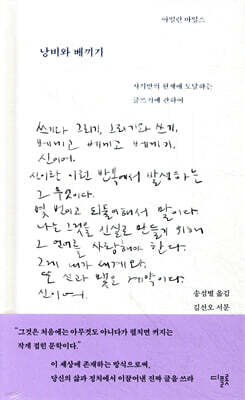 아일린 마일스
낭비와 베끼기
자기만의 현재에 도달하는
글쓰기에 관하여
쓰기다 그리기, 그리기와 쓰기,
베끼고 베끼고 베끼기,
신이여.
신이란 이런 반복에서 발생하는
그 무엇이다.
몇 번이고 되돌이해서 말이다.
나는 그것을 진실로 만들기 위해
그 언어를 사랑해야 한다.
그게 내가 내게와,
또 신과 맺은 계약이다.
신이여.
송섬별 옮김
김선오 서문
“그것은 처음에는 아무것도 아니다가 펼치면 커지는
작게 접힌 문학이다.”
이 세상에 존재하는 방식으로써,
당신의 삶과 정치에서 이끌어낸 진짜 글을 쓰라
디플롯